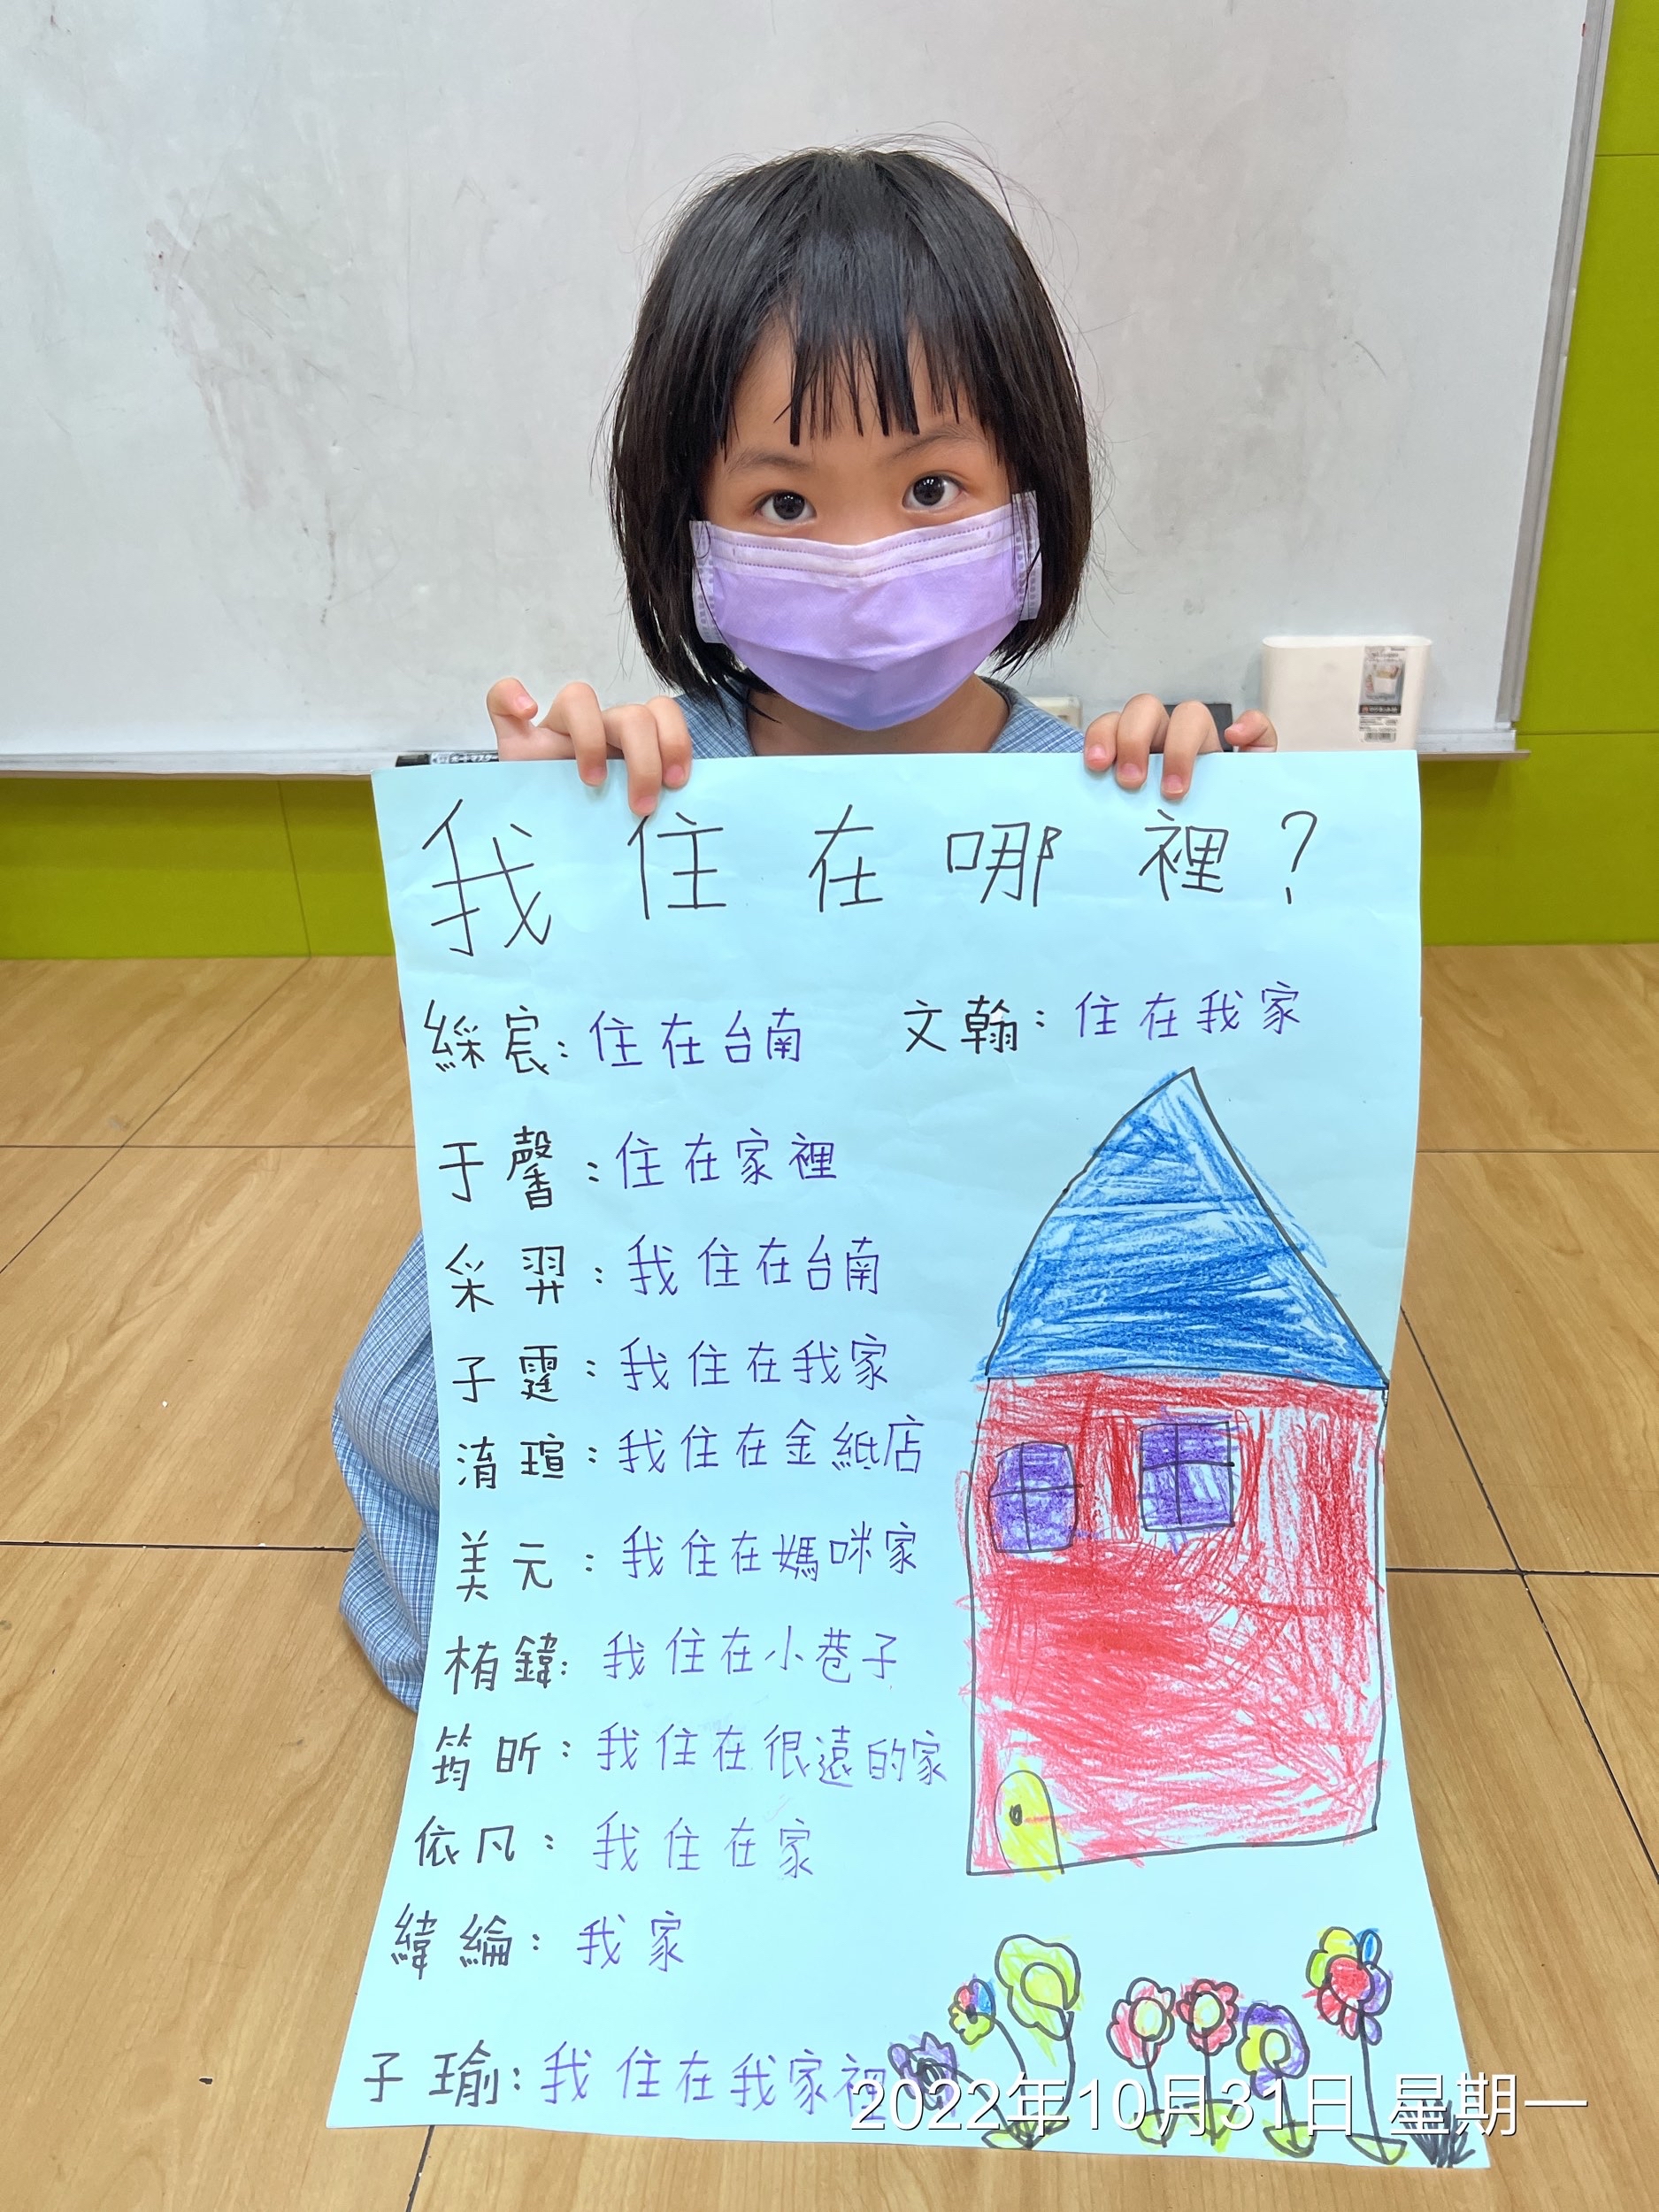 我住在哪裡?
綵宸:住在台南 文翰:住在我家
于馨:住在家裡
采羿:我住在台南
子霆:我住在我家
淯瑄:我住在金紙店
美元:我住在媽咪家
栯鍏:我住在小巷子
筠昕:我住在很遠的家
依凡:我住在家
緯綸:我家
子瑜:我住在我家裡
2022年10月31日 星期一